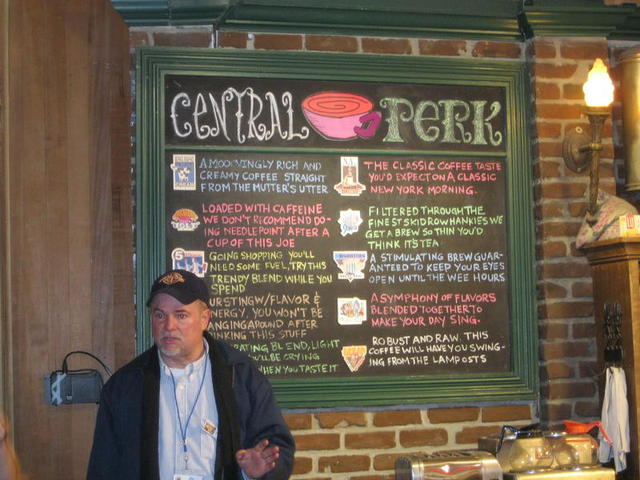 CENTRAL PERK
A MOOOVINGLY RICH AND
CREAMY COFFEE STRAIGHT
FROM THE MUTTER'S UTTER
LOADED WITH CAFFEINE
WE DON'T RECOMMEND DO-
ING NEEDLEPOINT AFTER A
CUP OF THIS JOE
GOING SHOPPING YOU'LL
NEED SOME FUEL, TRY THIS
TRENDY BLEND WHILE YOU
SPEND
URSTING W/FLAVOR &
NERGY, YOU WON'T BE
ANGING AROUND AFTER
INKING THIS STUFF
ATING BLEND, LIGHT
'LL BE CRYING
WHEN YOU TASTE IT
THE CLASSIC COFFEE TASTE
YOU'D EXPECT ON A CLASSIC
NEW YORK MORNING.
FILTERED THROUGH THE
FINEST SKID ROW HANKIES WE
GET A BREW SO THIN YOU'D
THINK IT'S TEA
A STIMULATING BREW GUAR-
ANTEED TO KEEP YOUR EYES
OPEN UNTIL THE WEE HOURS
A SYMPHONY OF FLAVORS
BLENDED TOGETHER TO
MAKE YOUR DAY SING.
ROBUST AND RAW. THIS
COFFEE WILL HAVE YOU SWING-
ING FROM THE LAMP OSTS